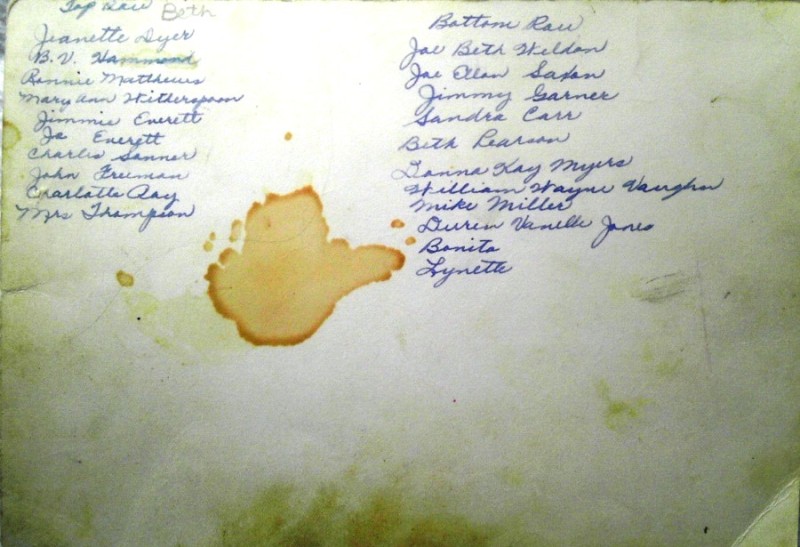 Top Row Beth
Jeanette Dyer
B.V. Hammond
Ronnie Matthews
Mary Ann Witherspoon
Jimmie Everett
Jo Everett
Charles Sanner
John Freeman
Charlotte Ray
Mrs Thompson
Bottom Row
Joe Beth Weldon
Joe Ellen Saxon
Jimmy Garner
Sandra Carr
Beth Pearson
Donna Kay Myers
William Wayne Vaughn
Mike Miller
Vanelle Jones
Bonita
Lynette